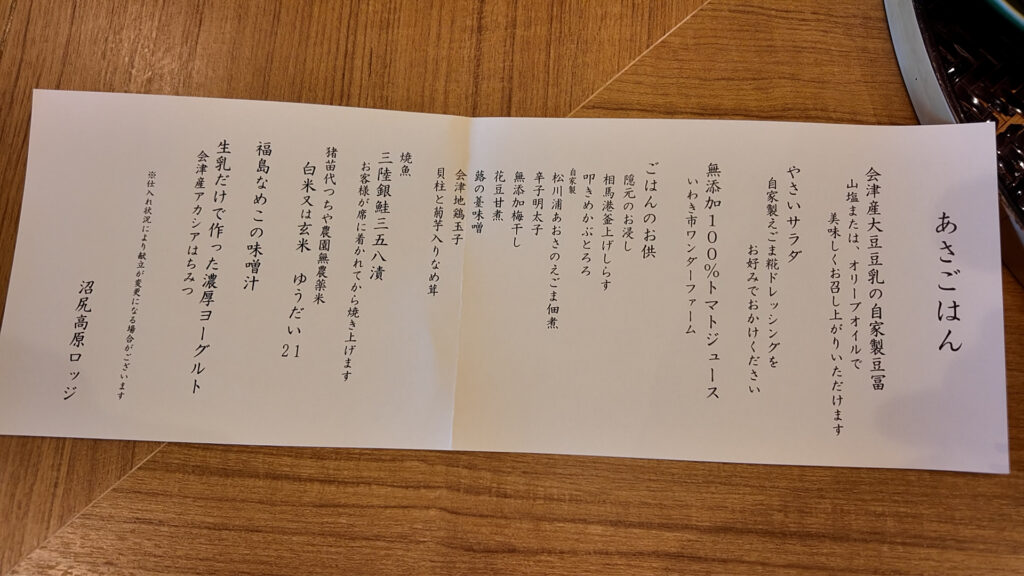 あさごはん
会津産大豆豆乳の自家製豆冨
山塩または、オリーブオイルで
美味しくお召し上がりいただけます
やさいサラダ
自家製えごま糀ドレッシングを
お好みでおかけください
無添加100%トマトジュース
いわき市ワンダーファーム
ごはんのお供
隠元のお浸し
相馬港釜上げしらす
叩きめかぶとろろ
自家製
松川浦あおさのえごま佃煮
辛子明太子
無添加梅干し
花豆甘煮
蕗の薹味噌
会津地鶏玉子
貝柱と菊芋入りなめ茸
焼魚
三陸銀鮭三五八漬
お客様が席に着かれてから焼き上げます
猪苗代つちや農園無農薬米
白米又は玄米 ゆうだい21
福島なめこの味噌汁
生乳だけで作った濃厚ヨーグルト
会津産アカシアはちみつ
※仕入れ状況により献立が変更になる場合がございます
沼尻高原ロッジ